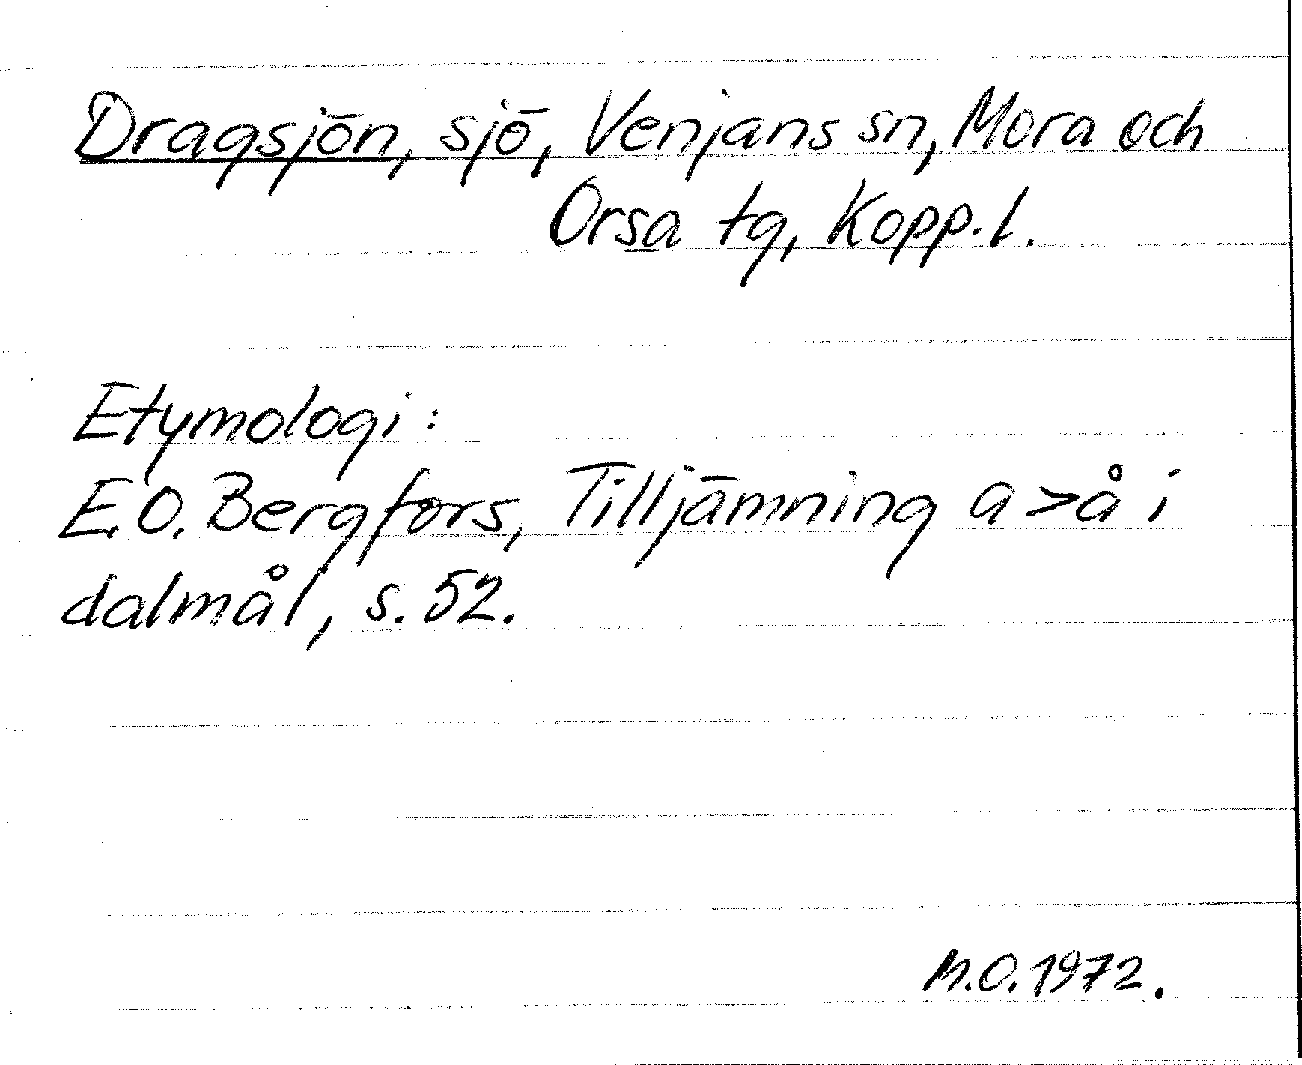 Dragsjön, sjö, Venjans sn, Mora och
Orsa tg, Kopp. l.
Etymologi:
E.O. Bergfors, Tilljämning a>å i
dalmål, s. 52.
M.O. 1972.